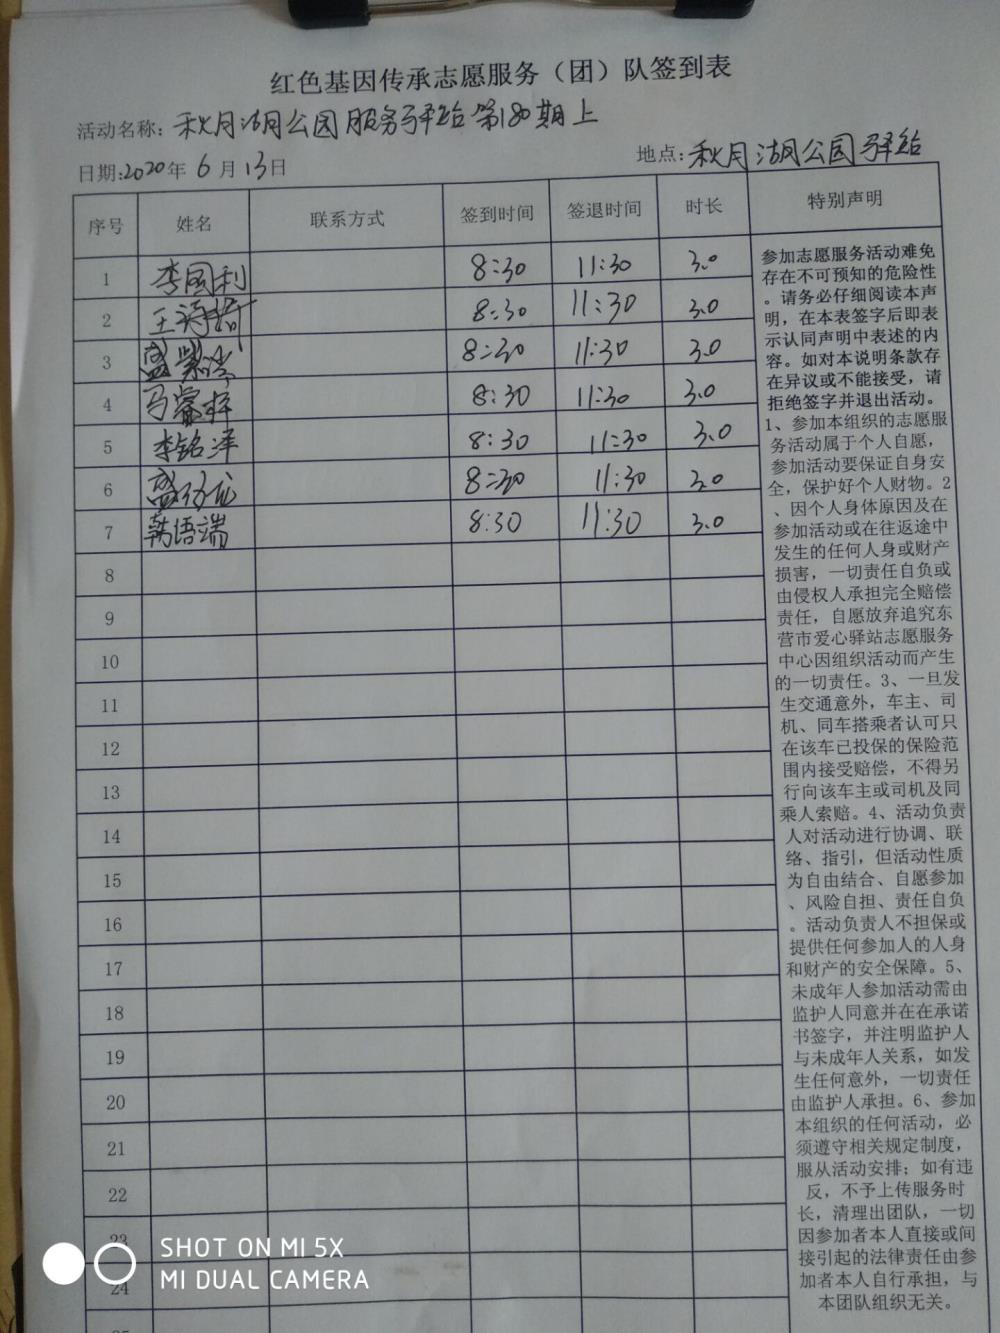 红色基因传承志愿服务（团）队签到表
活动名称：秋月湖公园服务驿站第180期上
日期:2020年 6 月 13日
地点:秋月湖公园驿站
序号 姓名 联系方式 签到时间 签退时间 时长 特别声明
1 李国利 8:30 11:30 3.0
2 王诗 8:30 11:30 3.0
3 盛紫 8:30 11:30 3.0
4 马睿梓 8:30 11:30 3.0
5 李铭泽 8:30 11:30 3.0
6 盛 龙 8:30 11:30 3.0
7 韩语端 8:30 11:30 3.0
8
9
10
11
12
13
14
15
16
17
18
19
20
21
22
23
24
参加志愿服务活动难免
存在不可预知的危险性
。请务必仔细阅读本声
明，在本表签字后即表
示认同声明中表述的内
容。如对本说明条款存
在异议或不能接受，请
拒绝签字并退出活动。
1、参加本组织的志愿服
务活动属于个人自愿，
参加活动要保证自身安
全，保护好个人财物。2
、因个人身体原因及在
参加活动或在往返途中
发生的任何人身或财产
损害，一切责任自负或
由侵权人承担完全赔偿
责任，自愿放弃追究东
营市爱心驿站志愿服务
中心因组织活动而产生
的一切责任。3、一旦发
生交通意外，车主、司
机、同车搭乘者认可只
在该车已投保的保险范
围内接受赔偿，不得另
行向该车主或司机及同
乘人索赔。4、活动负责
人对活动进行协调、联
络、指引，但活动性质
为自由结合、自愿参加
、风险自担、责任自负
。活动负责人不担保或
提供任何参加人的人身
和财产的安全保障。5、
未成年人参加活动需由
监护人同意并在在承诺
书签字，并注明监护人
与未成年人关系，如发
生任何意外，一切责任
由监护人承担。6、参加
本组织的任何活动，必
须遵守相关规定制度，
服从活动安排；如有违
反，不予上传服务时
长，清理出团队，一切
因参加者本人直接或间
接引起的法律责任由参
加者本人自行承担，与
本团队组织无关。
SHOT ON MI 5X
MI DUAL CAMERA